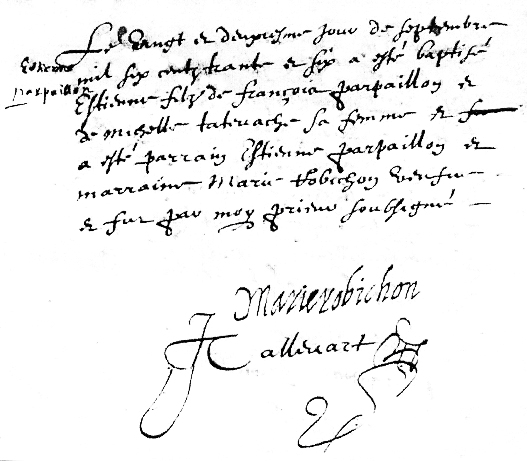 Estienne
parpaillon
Le vingt et deuxiesme jour de septembre
mil six cent trante et six a esté baptisé
Estienne filz de françois parpaillon et
de michelle sa femme et
a esté parrain Estienne parpaillon et
marraine Marie Robichon veufve
et fut par moy prieur soubsigné
Marie robichon
allevart